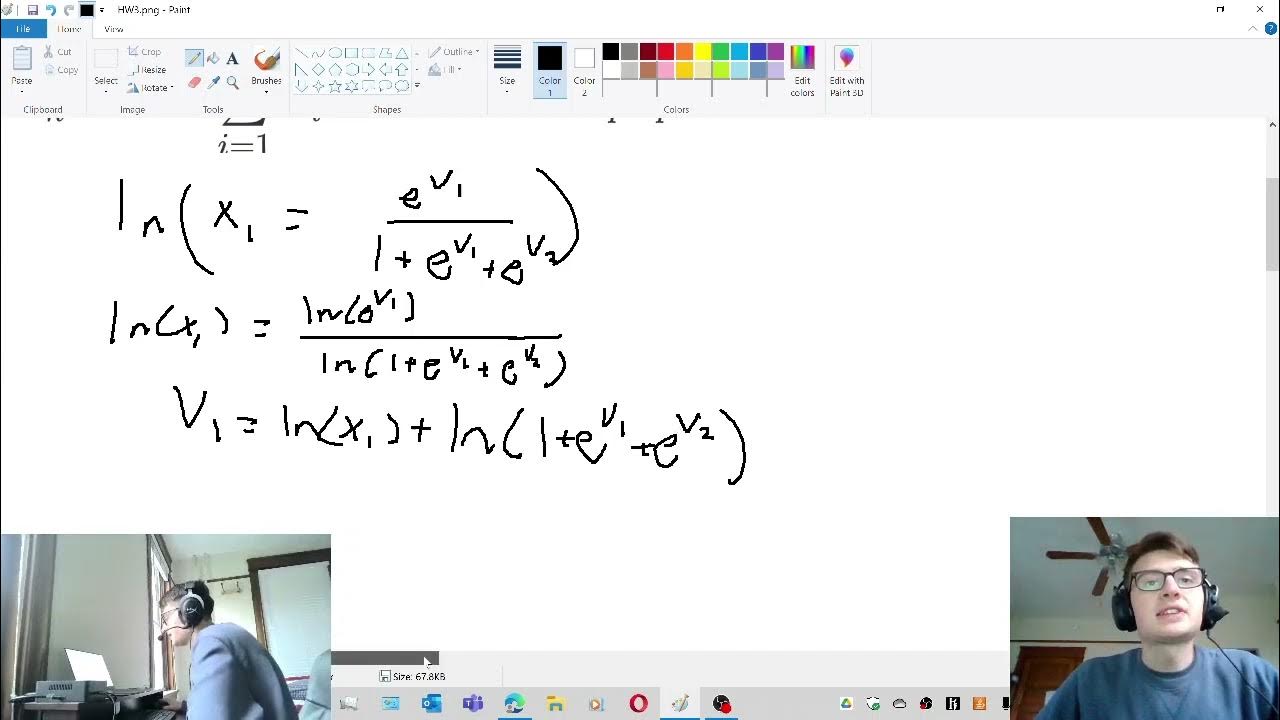 HW3.png - Paint
File Home View
Paste Cut Copy Clipboard
Select Crop Resize Rotate Image
Tools
Brushes
Shapes Outline Fill
Size
Color 1 Color 2 Colors
Edit colors
Edit with Paint 3D
i=1
ln(x₁ = e^V₁ / (1+e^V₁+e^V₂))
ln(x₁) = ln(e^V₁) / ln(1+e^V₁+e^V₂)
V₁ = ln(x₁) + ln(1+e^V₁+e^V₂)
Size: 67.8KB